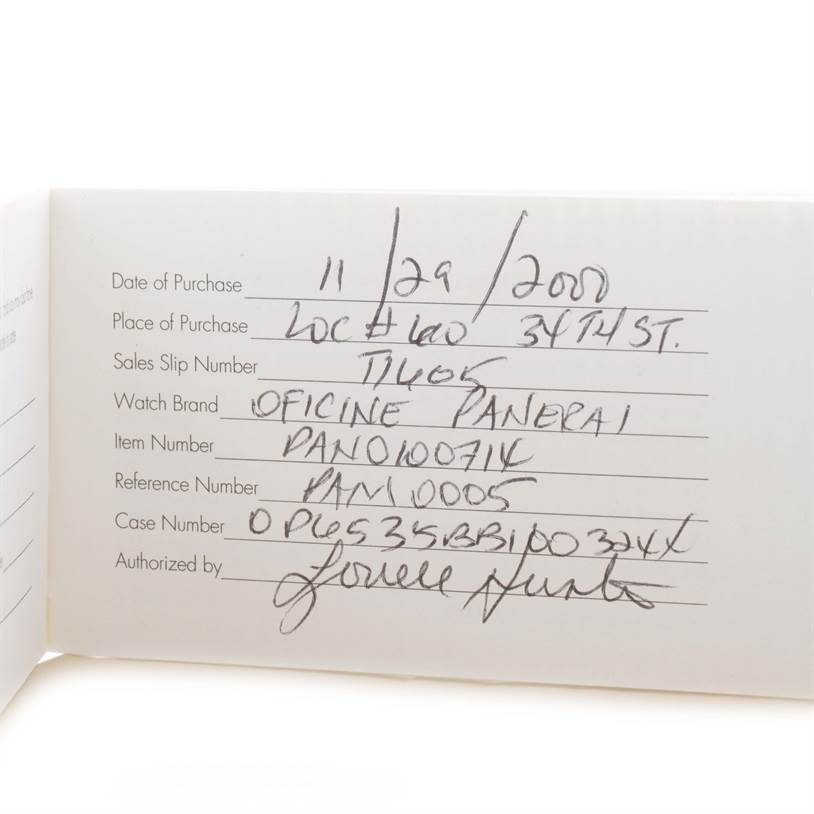 Date of Purchase 11/29/2000
Place of Purchase LOC #660 34TH ST.
Sales Slip Number T1605
Watch Brand OFICINE PANERAI
Item Number PAN0100714
Reference Number PAM0005
Case Number OP6535BB1003244
Authorized by